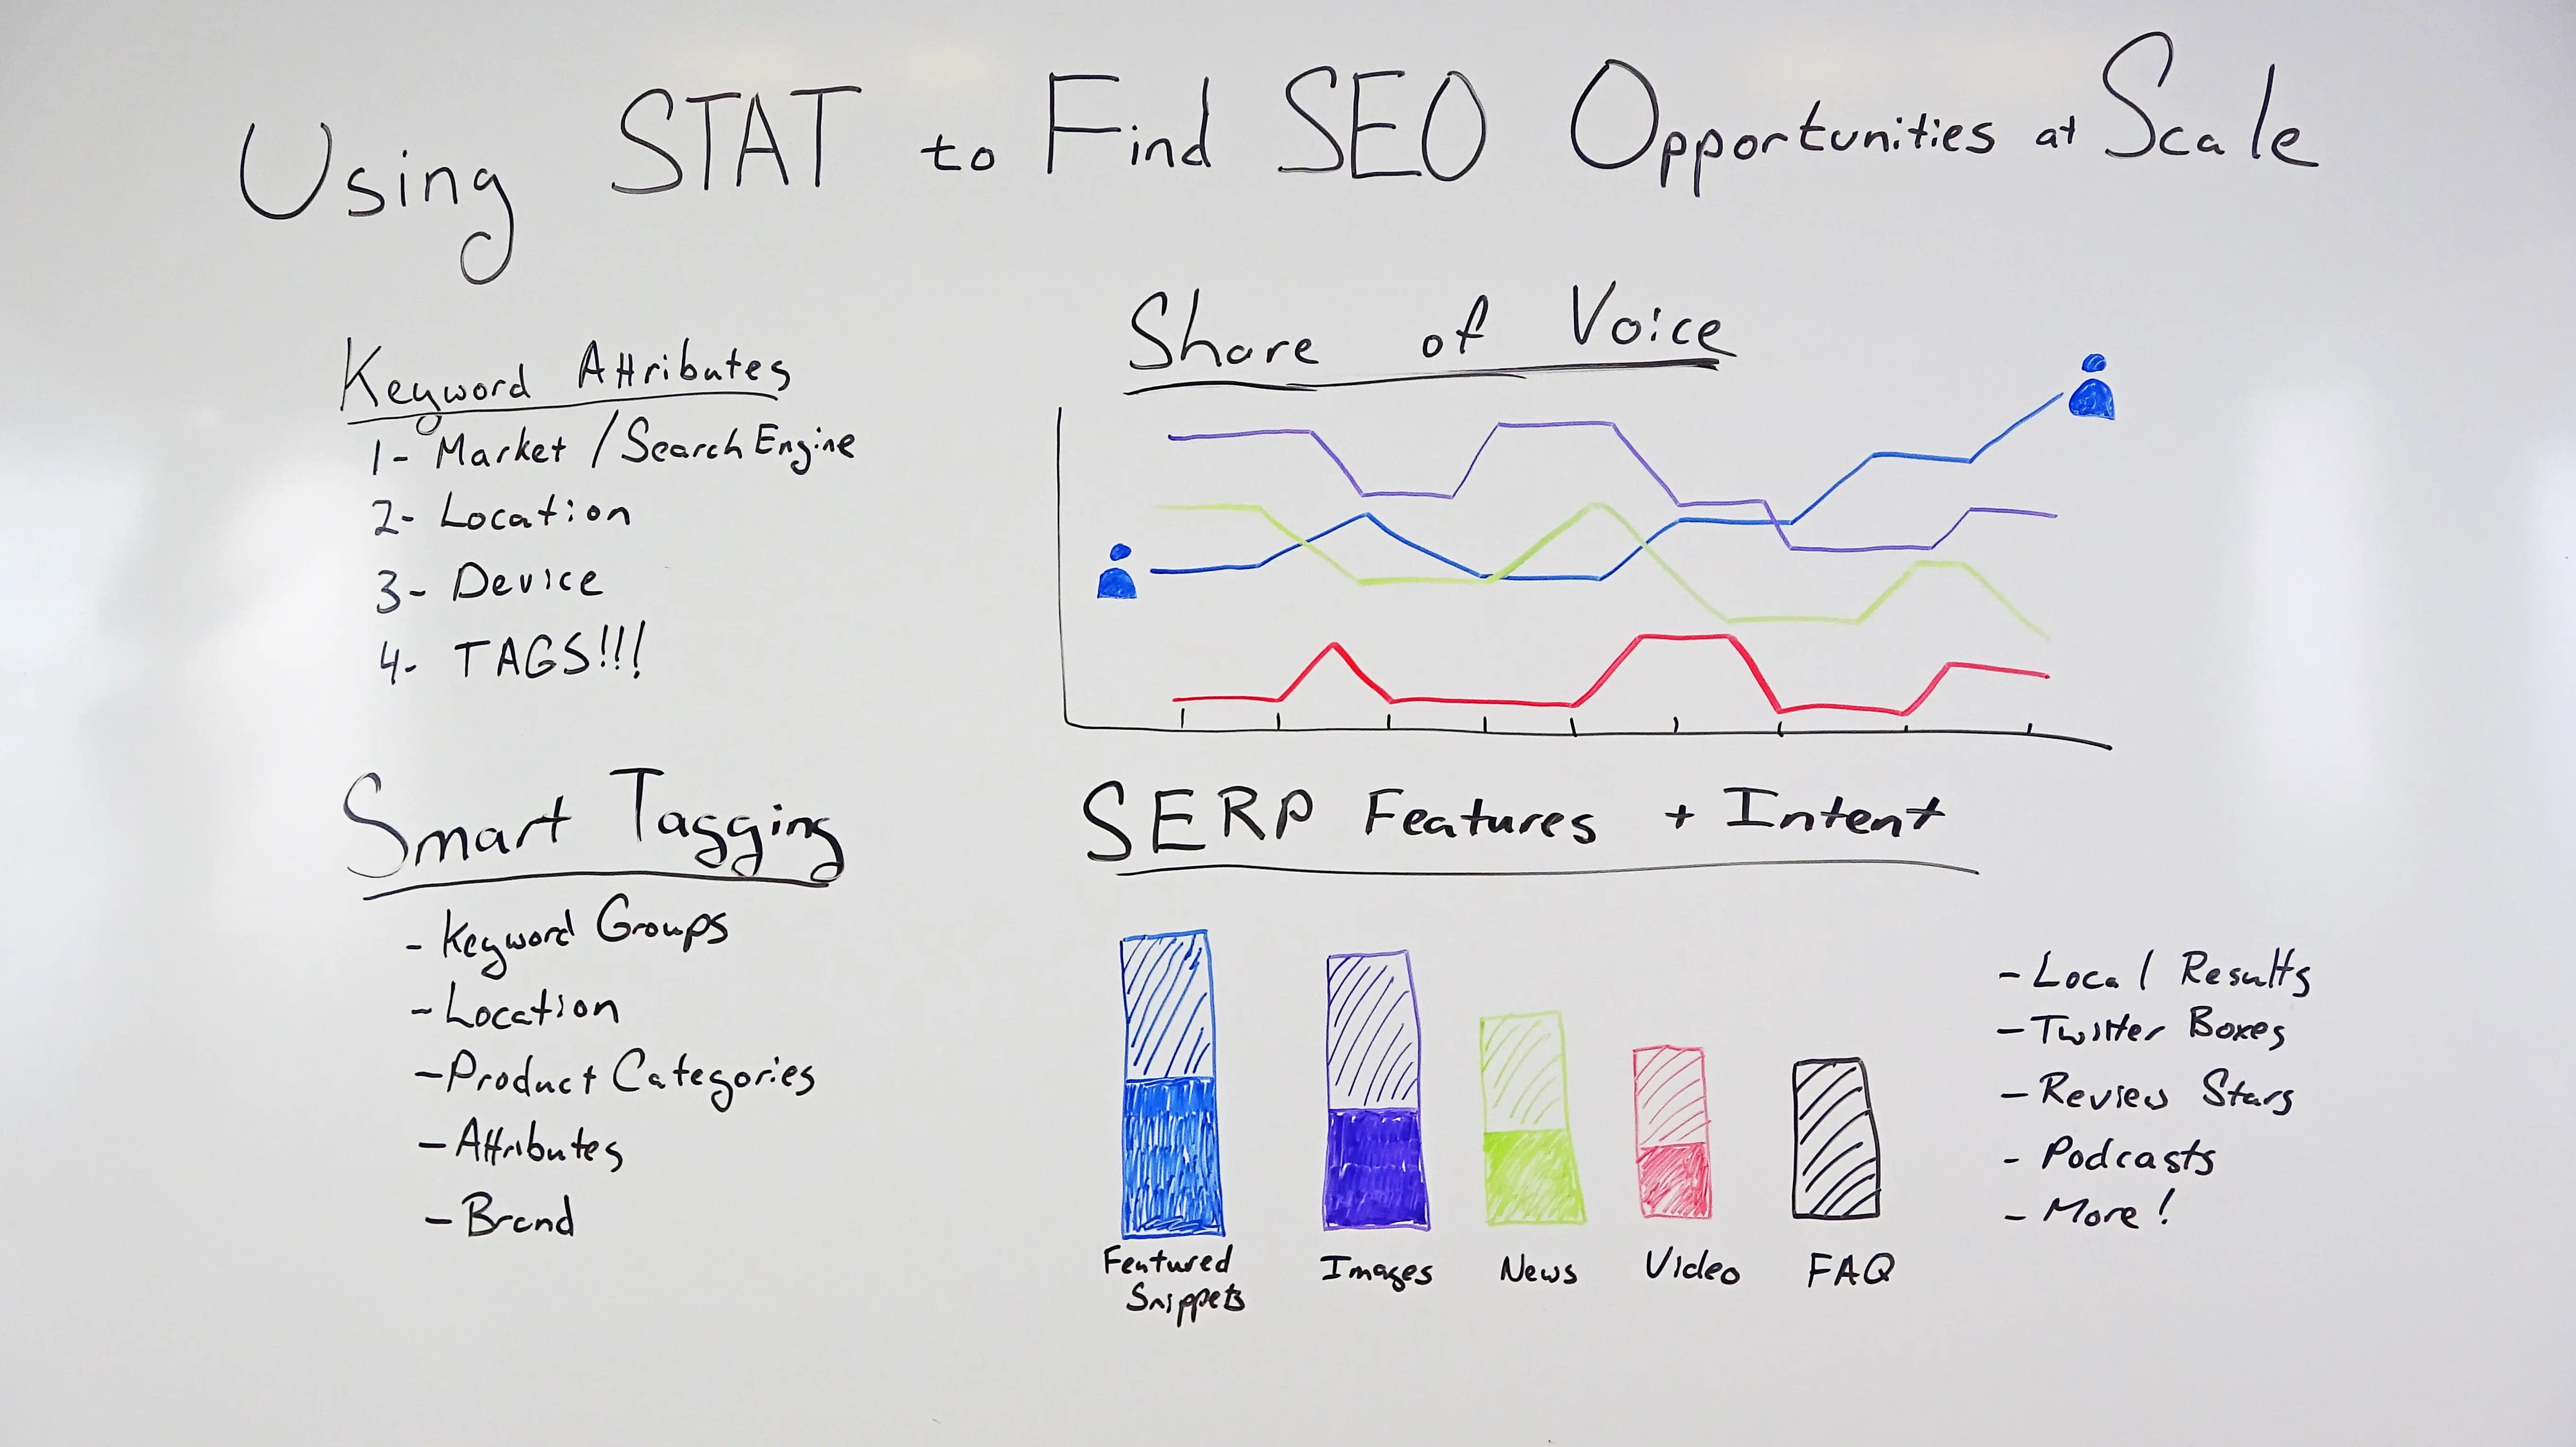 Using STAT to Find SEO Opportunities at Scale
Keyword Attributes
1- Market / Search Engine
2- Location
3- Device
4- TAGS!!!
Smart Tagging
- Keyword Groups
- Location
- Product Categories
- Attributes
- Brand
Share of Voice
SERP Features + Intent
Featured
Snippets
Images
News
Video
FAQ
- Local Results
- Twitter Boxes
- Review Stars
- Podcasts
- More!